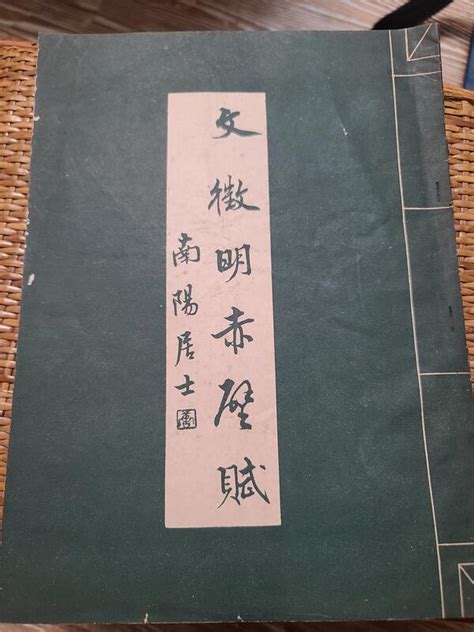 文徵明赤壁賦
南陽居士